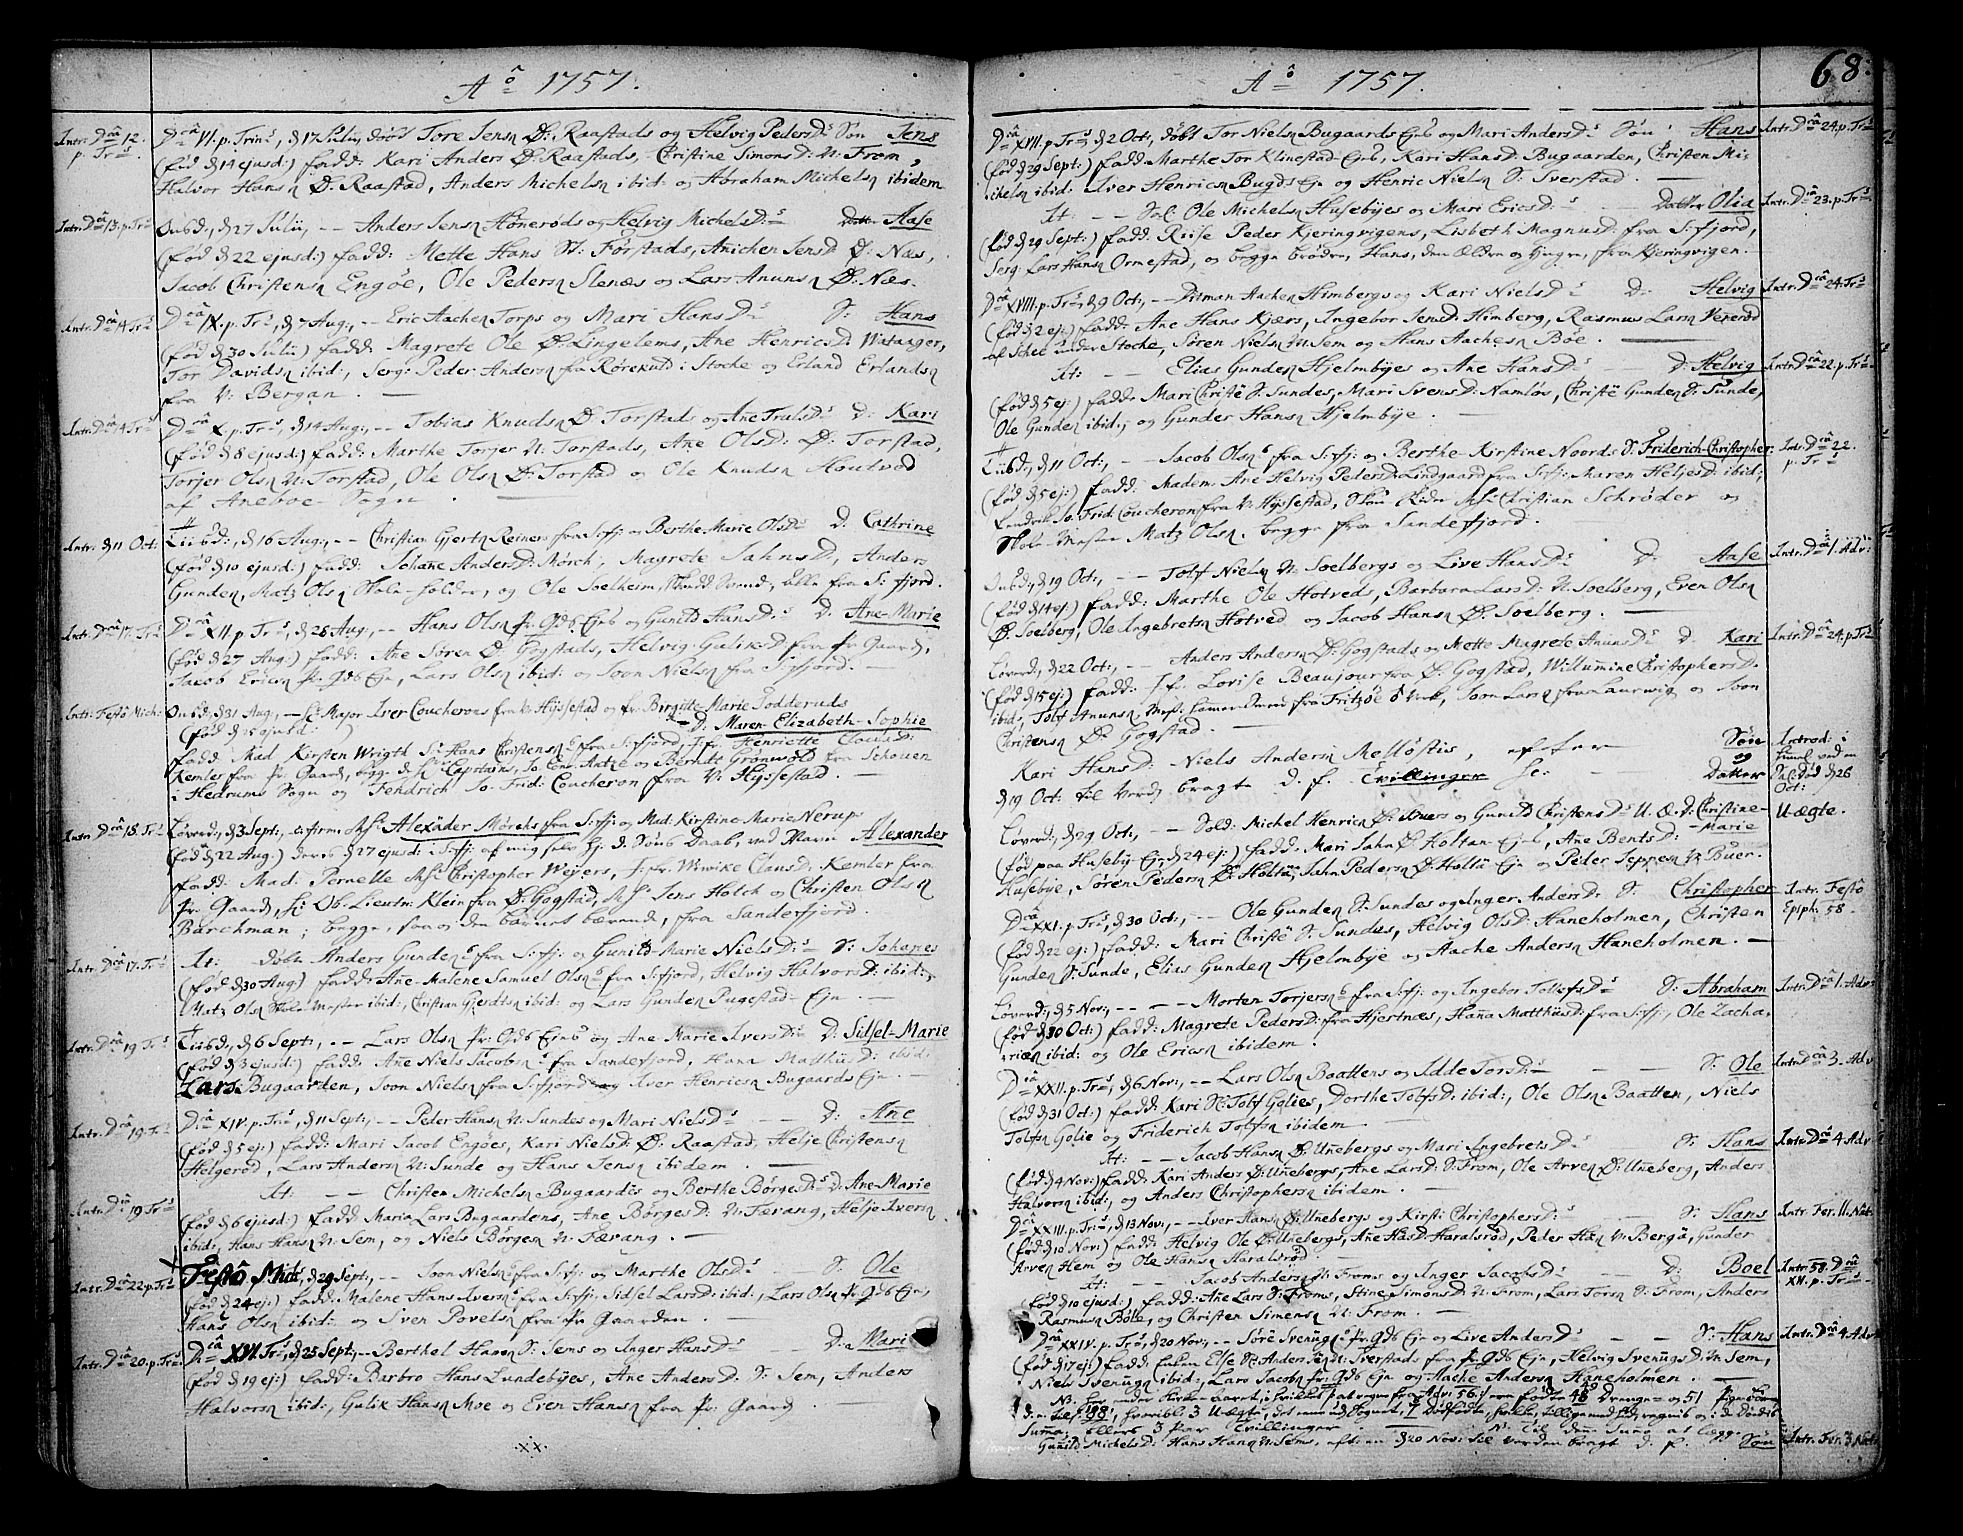 Aô 1757.
Intr: Dcâ 12. p. Trs.
Dcâ VI. p. Trins, d 17 Julii, døbt Tore Jensn Ø: Raastads og Helvig PedersD: Søn Jens
(fød d 14 ejusd:) fadd: Kari Anders Ø: Raastads, Christine SimonsD: N: From,
Halvor Hansn Ø: Raastad, Anders Michelsn ibid: og Abraham Michelsn ibidem
Intr: Dcâ 13. p. Trs
Onsd, d 27 Julii, -- Anders Jensn Hønerøds og Helvig MichelsD: Datt Aase
(fød d 22 ejusd:) fadd: Mette Hans Førstads, Anichen JensD Ø: Næs,
Jacob Christensn Engøe, Ole Pedersn Slenæs og Lars Anunsn Ø: Næs.
Intr: Dcâ 14 Trs
Dcâ IX. p. Trs, d 7 Aug:, -- Eric Aachen Torps og Mari HansD: S: Hans
(fød d 30 Julii) fadd: Magrete Ole Ø: Lingelems, Ane HenricsD:
Tor Davidsn ibid:, Serg: Peder Andersn fra Rørekuld i Stocke og Erland Erlandsn
fra V: Bergan.
Intr: Dcâ 14 Trs
Dcâ X. p. Trs, d 14 Aug:, -- Tobias Knudsn Ø: Torstads og Ane TralsD: D: Kari
(fød d 8 ejusd:) fadd: Marthe Torjer N: Torstads, Ane OlsD: Ø: Torstad,
Torjer Olsn N: Torstad, Ole Olsn Ø: Torstad og Ole Knudsn Houtvod
af Aneboe Sogn.
Intr: d 11 Oct:
Tiisd:, d 16 Aug:, -- Christian Gjertn Reiners fra S:fj: og Berthe-Marie OlsD: D: Cathrine
(fød d 10 ejusd:) fadd: Johane AndersD: Mörch, Magrete JahnsD:, Anders
Gunden, Matz Olsn Skole-holder, og Ole Soelheim, alle fra S:fjord.
Intr: Dcâ 17. Trs
Dcâ XII. p. Trs, d 28 Aug:, -- Hans Olsn Pr. Gds Ejes og Gunild HansD: D: Ane-Marie
(fød d 27 Aug:) fadd: Ane Søren Ø: Gogstads, Helvig GulicksD fra Pr: Gaard,
Jacob Ericsn Pr. Gds Eje, Lars Olsn ibid: og Joon Nielsn fra S:fjord.
Intr: Festô Mich:
Onsd, d 31 Aug:, -- Hr Major Iver Coucherons fra V: Hyssestad og fr: Birgitte-Marie Todderuds
(fød d 15 ejusd:) D: Maren-Elizabeth-Sophie
fadd: Mad. Kirsten Wrigth Sr Hans Christensns fra S:fjord, J.fr: Henriette ClausD:
Kemler fra Pr: Gaard, begge d. Hr Capitains, Jo. Matze og Berntt Grønwold fra Schouen
i Hedrums Sogn og Fendrich Jo. Frid: Coucheron fra V: Hyssestad.
Intr: Dcâ 18. Trs
Løverd:, d 3 Sept:, confirm. Mr Alexander Mörchs fra S:fj: og Mad: Kirstine Marie Nerup Alexander
(fød d 22 Aug:) d 27 ejusd: i S:fj: af mig selv hj. d. Søns Daab, ved Navn
fadd: Mad: Pernelle Mr Christopher Weyers, J.fr: Wivike ClausD: Kemler fra
Pr: Gaard, Hr Ob. Lieutn: Klein fra Ø: Gogstad, Mr Jens Holch og Christen Olsn
Barchman; begge, saa og den barnet bærende, fra Sandefjord.
Intr: Dcâ 17. Trs
It: døbt Anders Gundens fra S:fj: og Gunild-Marie NielsD: S: Johanes
(fød d 30 Aug:) fadd: Ane-Malene Samuel Olsns fra S:fjord, Helvig HalvorsD: ibid:,
Matz Olsn Skole-Mester ibid:, Christian Gjerdtsn ibid: og Lars Gunden Pugestad-Eje.
Intr: Dcâ 19 Trs
Tiisd:, d 6 Sept:, -- Lars Olsn Pr. Gds Ejes og Ane-Marie IversD: D: Sidsel-Marie
(fød d 3 ejusd:) fadd: Ane Niels Jacobsns fra Sandefjord, Hana MadthiisD: ibid:
Lars Bugaarden, Joon Nielsn fra S:fjord og Iver Henricsn Bugaards Eje.
Intr: Dcâ 19 Trs
Dcâ XIV. p. Trs, d 11 Sept:, -- Peder Hansn N: Sundes og Mari NielsD: D: Ane
(fød d 5 ej:) fadd: Mari Jacob Engøes, Kari NielsD: Ø: Raastad, Helje Christensn
Helgerød, Lars Andersn N: Sunde og Hans Jensn ibidem.
Intr: Dcâ 19 Trs
It: -- Christen Michelsn Bugaardes og Berthe BørgesD: D: Ane-Marie
(fød d 6 ejusd:) fadd Maria Lars Bugaardens, Ane BørgesD: N: Fevang, Helje Iversn
ibid:, Hans Hansn N: Sem, og Niels Børgesn N: Fævang.
Intr: Dcâ 22 p. Trs
Festô Mich:, d 29 Sept:, -- Joon Nielsns fra S:fj: og Marthe OlsD: S: Ole
(fød d 24 ej:) fadd: Malene Hans Ivers fra S:fj:, Sidsel LarsD: ibid:, Lars Olsn Pr. Gds Eje,
Hans Olsn ibid: og Sven Povelsn fra Pr: Gaarden.
Intr: Dcâ 20. p. Trs
Dcâ XVI. Trs, d 25 Sept:, -- Berthel Hansn S: Sems og Inger HansD: D: Mari
(fød d 19 ej:) fadd: Barbro Hans Lundebyes, Ane AndersD: S: Sem, Anders
Halvorsn ibid:, Gulik Hansn Moe og Even Hansn fra Pr: Gaard.
Aô 1757.
68.
Dcâ XVII. p. Trs, d 2 Oct:, døbt Tor Nielsn Bugaards Ejes og Mari AndersD: Søn: Hans
Intr: Dcâ 24. p. Trs
(fød d 29 Sept:) fadd: Marthe Tor Klinestad-Ejes, Kari HansD: Bugaarden, Christen Mi-
ichelsn ibid: Iver Henricsn Bugds Eje og Henric Nielsn S: Sverstad.
It: -- Sol: Ole Michelsn Husebyes og Mari EricsD: Datter Olia
Intr: Dcâ 23. p. Trs
(fød d 29 Sept:) fadd: Riise Peder Kjeringvigens, Lisbeth MagnusD: fra S:fjord,
Serg: Lars Hansn Ormestad, og begge brødre, Hans, den Ældre og Yngre, fra Kjeringvigen.
Dcâ XVIII. p. Trs, d 9 Oct:, -- Ditman Aachen Himbergs og Kari NielsD: D: Helvig
Intr: Dcâ 24. Trs
(fød d 2 ej:) fadd: Ane Hans Kjærs, Ingebor JensD: Himberg, Rasmus Larsn Vererød
af Schee under Stocke, Søren Nielsn N: Sem og Hans Aachesn Bøe.
It: -- Elias Gunden Hjelmbyes og Ane HansD: D: Helvig
Intr: Dcâ 22. p. Trs
(fød d 5 ej:) fadd: Mari Christê S: Sundes, Mari SvensD: Namløs, Christê Gunden S: Sunde,
Ole Gunden ibid:, og Gunder Hansn Hjelmbye.
Tiisd:, d 11 Oct:, -- Jacob Olsns fra S:fj: og Berthe-Kirstine Noords S: Friderich-Christopher
Intr: Dcâ 22. p. Trs
(fød d 5 ej:) fadd: Madem: Ane Helvig PedersD: Lindgaard fra S:fj: Maren HeljesD: ibid:,
Fendrik Jo. Frid: Coucheron fra V: Hyssestad, Mr Christian Schrøder og
Skole-Mester Matz Olsn, begge fra Sandefjord.
Onsd:, d 19 Oct:, -- Tolf Nielsn N: Soelbergs og Live HansD: D: Aase
Intr: Dcâ 1. Adv:
(fød d 14 ej:) fadd: Marthe Ole Hotveds, Barbara LarsD: N: Soelberg, Even Olsn
Ø: Soelberg, Ole Ingebretsn Hotved og Jacob Hansn Ø: Soelberg.
Løverd:, d 22 Oct:, -- Anders Andersn Ø: Gogstads og Mette Magrete AnunsD: D: Kari
Intr: Dcâ 24. p. Trs
(fød d 15 ej:) fadd: J.fr: Lovise Beaujour fra Ø: Gogstad, Willumine ChristophersD:
ibid:, Tolf Anunsn fra Fritzøe Verk, Joon Larsn fra Laurwig og Joon
Christensn Ø: Gogstad.
Kari HansD: Niels Andersn Melløstis, efter Søn og Datter
d 19 Oct: til Verdn bragte D. f. Tvillinger
Løverd:, d 29 Oct:, -- Sold: Michel Henricn Ø: Buers og Gunild ChristensD: U.Æ. D: Christine-Marie
U:ægte.
(fød paa Huseby-Eje, d 24 ej:) fadd: Mari Jahn Ø Holtan-Ejes, Ane BentsD:
Husebye, Søren Pedersn Ø: Holtan, Jahn Pedersn Ø: Holtu Eje og Peder Jeppesn N: Buer.
Dcâ XXI. p. Trs, d 30 Oct:, -- Ole Gunden S: Sundes og Inger AndersD: S: Christopher
Intr: Festô Epiph: 58.
(fød d 22 ej:) fadd: Mari Christê S: Sundes, Helvig OlsD: Haneholmen, Christen
Gunden S: Sunde, Elias Gunden Hjelmbye og Aache Andersn Haneholmen.
Løverd:, d 5 Nov:, -- Morten Torjersns fra S:fj: og Ingebor TollefsD: S: Abraham
Intr: Dcâ 1. Adv:
(fød d 30 Oct:) fadd: Magrete PedersD: fra Hjertnæs, Hana MatthiisD: fra S:fj:, Ole Zacha-
riæn ibid: og Ole Ericsn ibidem.
Dcâ XXII. p. Trs, d 6 Nov:, -- Lars Olsn Baattens og Idde TorsD: S: Ole
Intr: Dcâ 3. Adv
(fød d 31 Oct:) fadd: Kari Tolf Golies, Dorthe TolfsD: ibid:, Ole Olsn Baatten, Niels
Tolfsn Golie og Friderich Tolfsn ibidem.
It: -- Jacob Hansn Ø: Unebergs og Mari IngebretsD: S: Hans
Intr: Dcâ 4. Adv
(fød d 4 Nov:) fadd: Kari Anders Ø: Unebergs, Ane LarsD: S: From, Ole Arvesn Ø: Uneberg, Anders
Halvorsn ibid:, og Anders Christophersn ibidem.
Dcâ XXIII. p. Trs, d 13 Nov:, -- Iver Hansn Ø: Unebergs og Kirsti ChristophersD: S: Hans
Intr: Fer. II. Nat:
(fød d 10 Nov:) fadd: Helvig Ole Ø: Unebergs, Ane HansD: Haralsrød, Peder Hansn V: Bergâ, Gunder
Arvesn Hem og Ole Hansn Haralsrød.
It: -- Jacob Andersn N: Froms og Inger JacobsD: D: Boel
Intr: 58. Dcâ XII. p. Trs
(fød d 10 ejusd:) fadd: Ane Lars S: Froms, Stine SimonsD: N: From, Lars Torsn S: From, Anders
Rasmusn Bøle, og Christen Simensn N: From.
Dcâ XXIV. p. Trs, d 20 Nov:, -- Sörê Svenugs Pr. Gds Eje og Live AndersD: S: Hans
Intr: Dcâ 4. Adv
(fød d 17 ej:) fadd: Else Andersn N: Sverstads fra Pr. Gds Eje, Helvig SvenugsD: N: Sem,
Niels Svenugsn ibid:, Lars Jacobsn fra Gds Eje og Aache Andersn Haneholmen.
fra Adv: 56. fødte 48 Drenge og 51
3 U-ægte, 7 Dødfødte,
Suma, Ellers 3 Par Tvillinger. N: Til den Suma at lægge
Gunild MichelsD: Hans Hansn N: Sems, d 20 Nov: til Verden bragt D. f. Søn
Intr: Fer. 3. Nat: